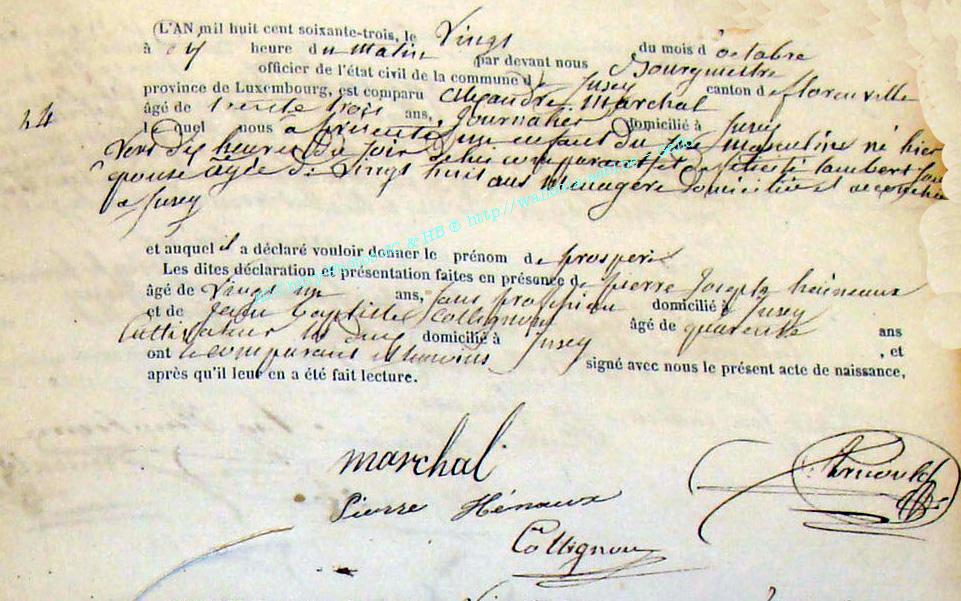 (L'AN mil huit cent soixante-trois, le Vingt du mois d'octobre
à heure du Matin par devant nous Bourgmestre
officier de l'état civil de la commune de Jusey canton de florenville
province de Luxembourg, est comparu Alexandre Marchal
24
âgé de trente trois ans, Journalier domicilié à Jusey
lequel nous a présenté un enfant du sexe Masculin né hier
vers dix heures du soir comparant et de lambert son
épouse âgée de Vingt huit ans Menagère domiciliée et accouchée
a Jusey
http://
et auquel il a déclaré vouloir donner le prénom de prosper
Les dites déclaration et présentation faites en présence de pierre Joseph héneaux
âgé de Vingt un ans, Sans profession domicilié à Jusey
et de Jean Baptiste Collignon âgé de quarente ans
Cultivateur domicilié à Jusey , et
ont le comparant et temoins signé avec nous le présent acte de naissance,
après qu'il leur en a été fait lecture.
marchal
Pierre Hénaux
Collignon